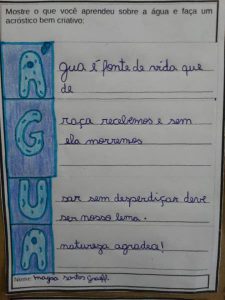 Mostre o que você aprendeu sobre a água e faça um
acróstico bem criativo:
A gua é fonte de vida que
de
G raça recebemos e sem
ela morremos
U sar sem desperdiçar deve
ser nosso lema.
A natureza agradece!
Nome: mayra santos